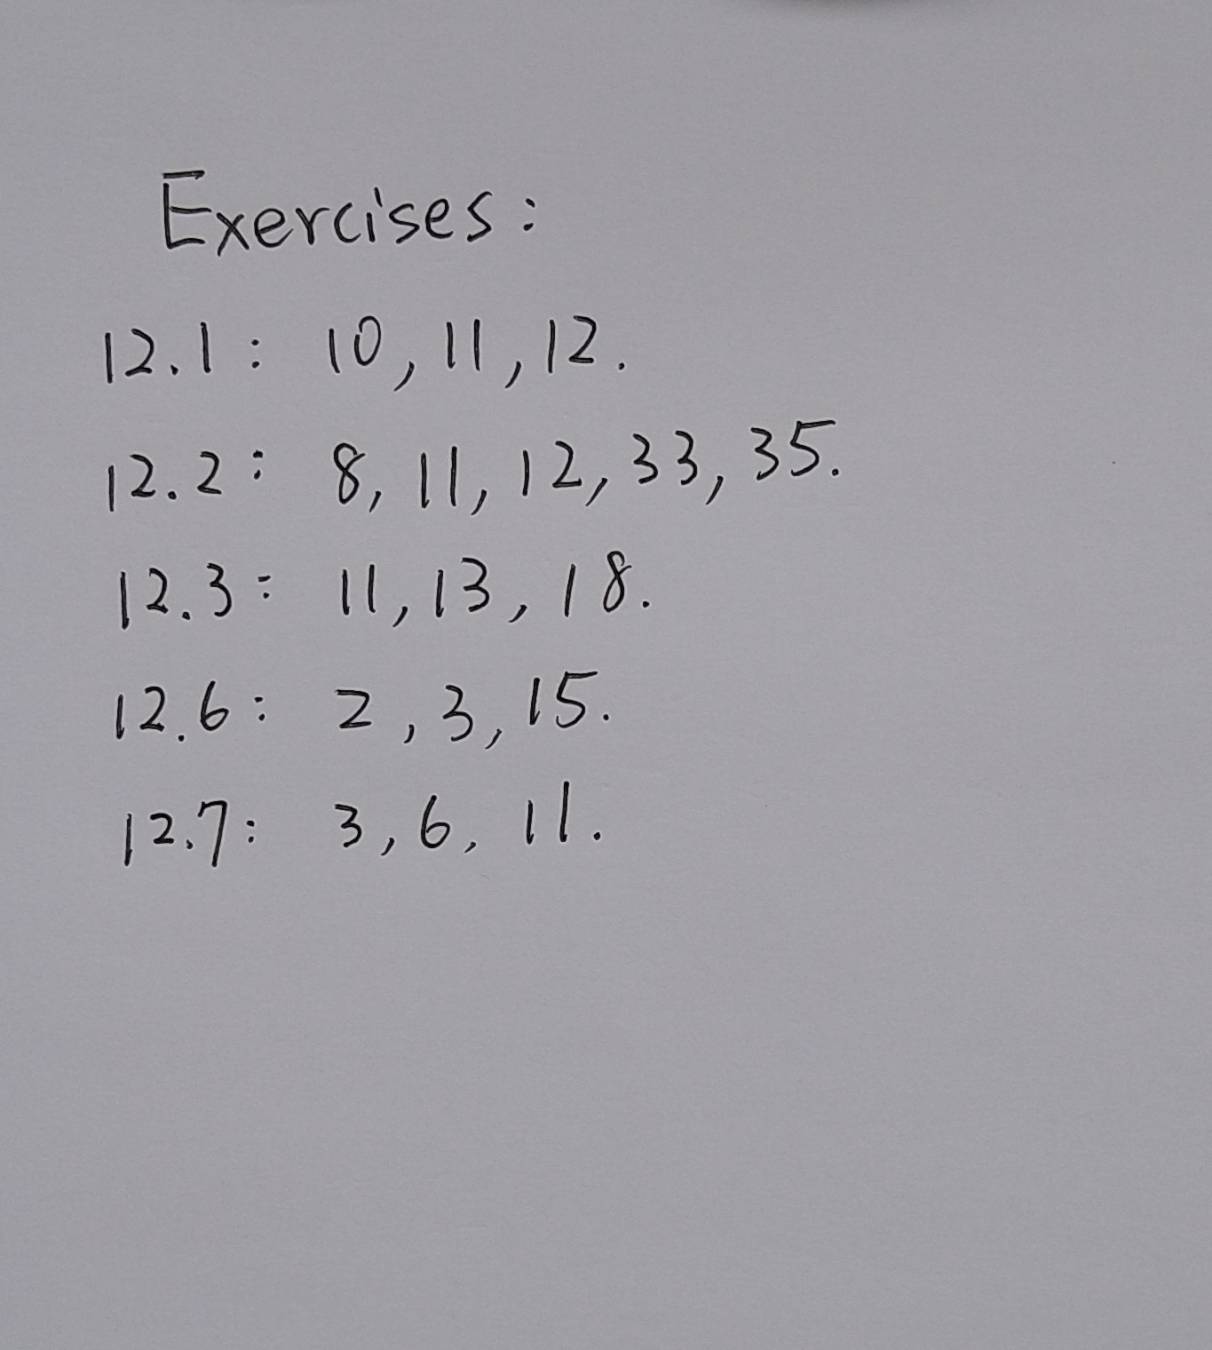 Exercises:
12.1: 10, 11, 12.
12.2: 8, 11, 12, 33, 35.
12.3: 11, 13, 18.
12.6: 2, 3, 15.
12.7: 3, 6, 11.